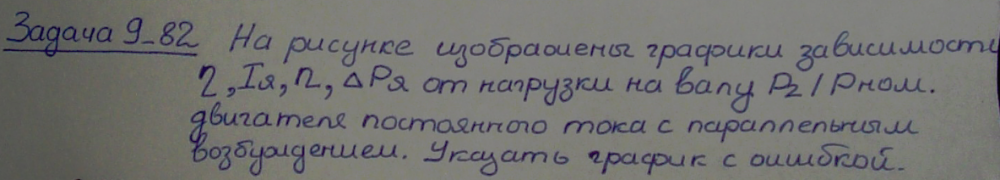 Задача 9-82 На рисунке изображены графики зависимости
η, Iя, n, ΔPя от нагрузки на валу P2/Pном.
двигателя постоянного тока с параллельным
возбуждением. Указать график с ошибкой.